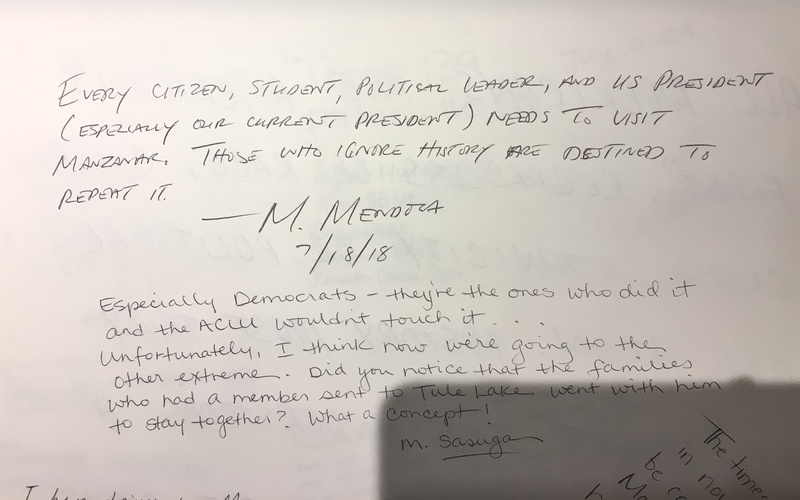 EVERY CITIZEN, STUDENT, POLITICAL LEADER, AND US PRESIDENT
(ESPECIALLY OUR CURRENT PRESIDENT) NEEDS TO VISIT
MANZANAR. THOSE WHO IGNORE HISTORY ARE DESTINED TO
REPEAT IT.
— M. MENDOZA
7/18/18
Especially Democrats – they're the ones who did it
and the ACLU wouldn't touch it . . .
Unfortunately, I think now we're going to the
other extreme. Did you notice that the families
who had a member sent to Tule Lake went with him
to stay together? What a concept!
M. Sasuga
The time
in
be